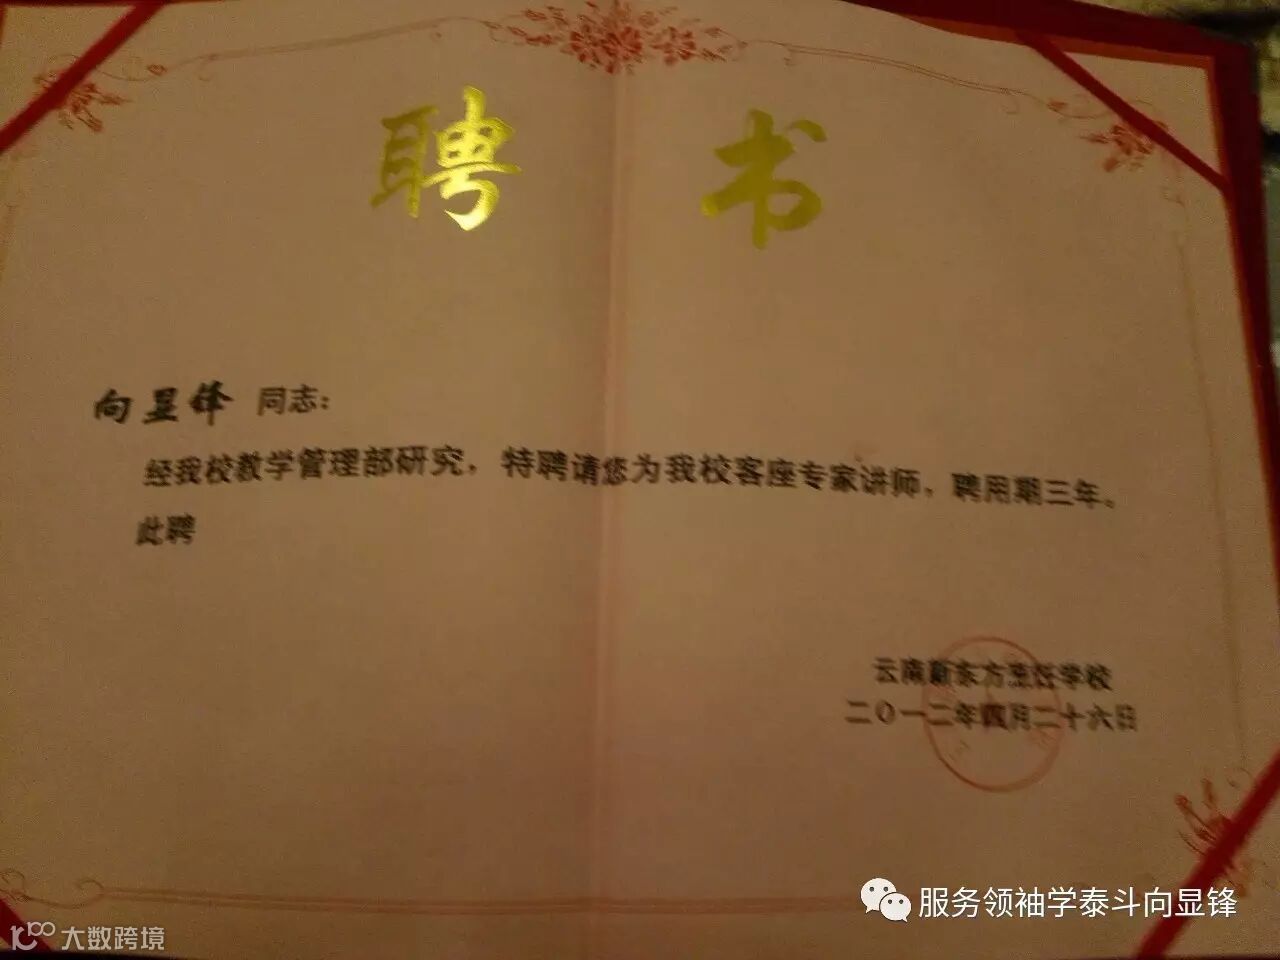 聘 书
向显锋 同志：
经我校教学管理部研究，特聘请您为我校客座专家讲师，聘用期三年。
此聘
云南新东方烹饪学校
二〇一二年四月二十六日
服务领袖学泰斗向显锋
10100 大数跨境